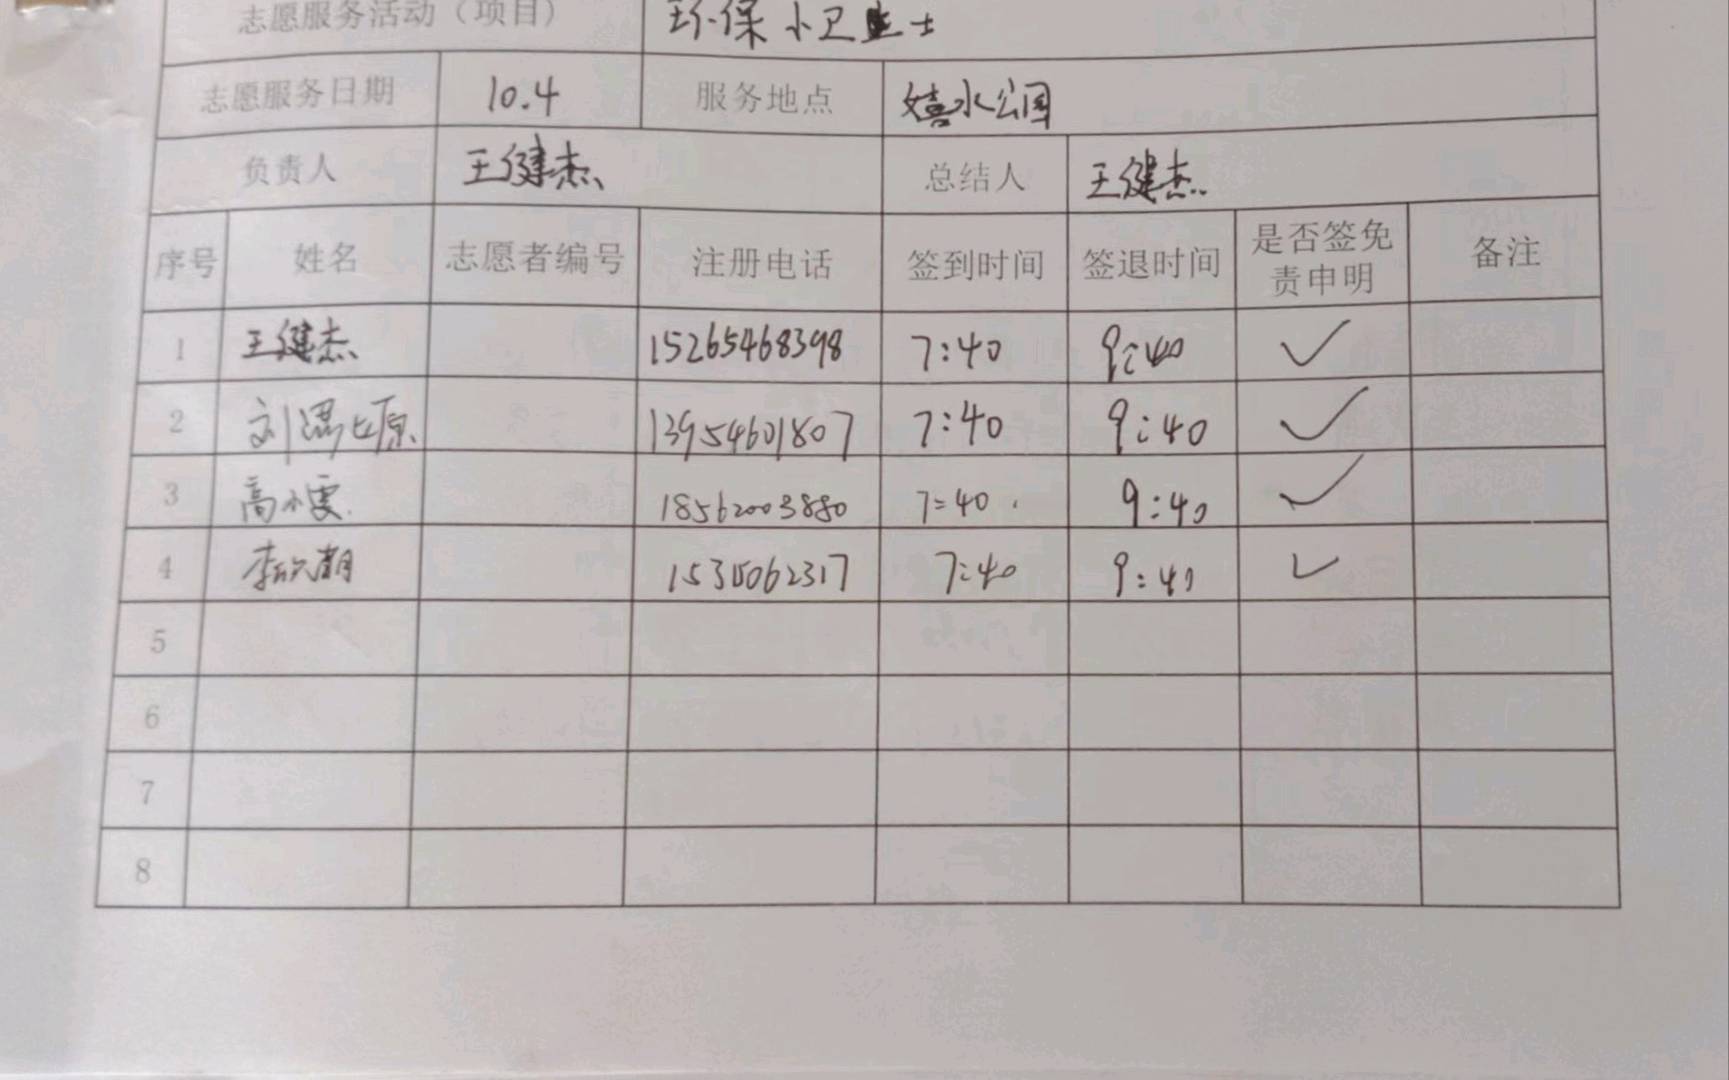 志愿服务活动（项目） 环保小卫士
志愿服务日期 10.4 服务地点 嬉水公园
负责人 王健杰 总结人 王健杰
序号 姓名 志愿者编号 注册电话 签到时间 签退时间 是否签免责申明 备注
1 王健杰 15265468398 7:40 9:40 ✓
2 刘 13954601807 7:40 9:40 ✓
3 高小雯 18562003880 7:40 9:40 ✓
4 李欣 7:40 9:40 ✓
5
6
7
8